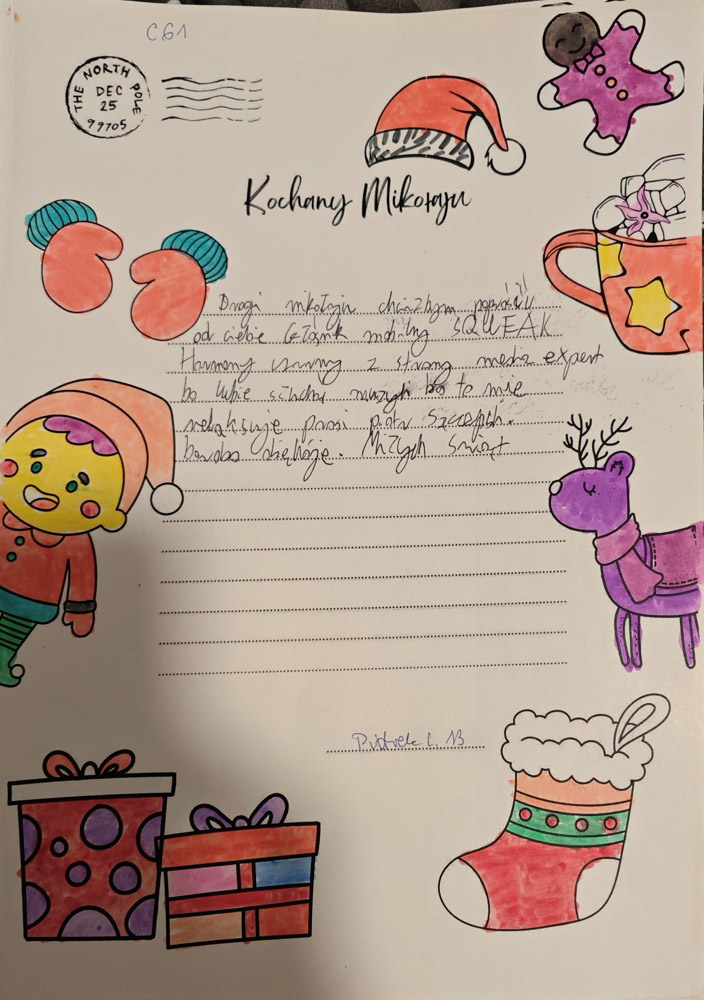 C61
THE NORTH POLE
DEC
25
99705
Kochany Mikołaju
Drogi mikołaju chciałbym poprosić
od ciebie Głośnik mobilny SQUEAK
Harmony czarny z strony media expert
bo lubie słuchać muzyki bo to mnie
relaksuje prosi piotr
bardzo dziękuje. Miłych Świąt
Piotrek L. 13